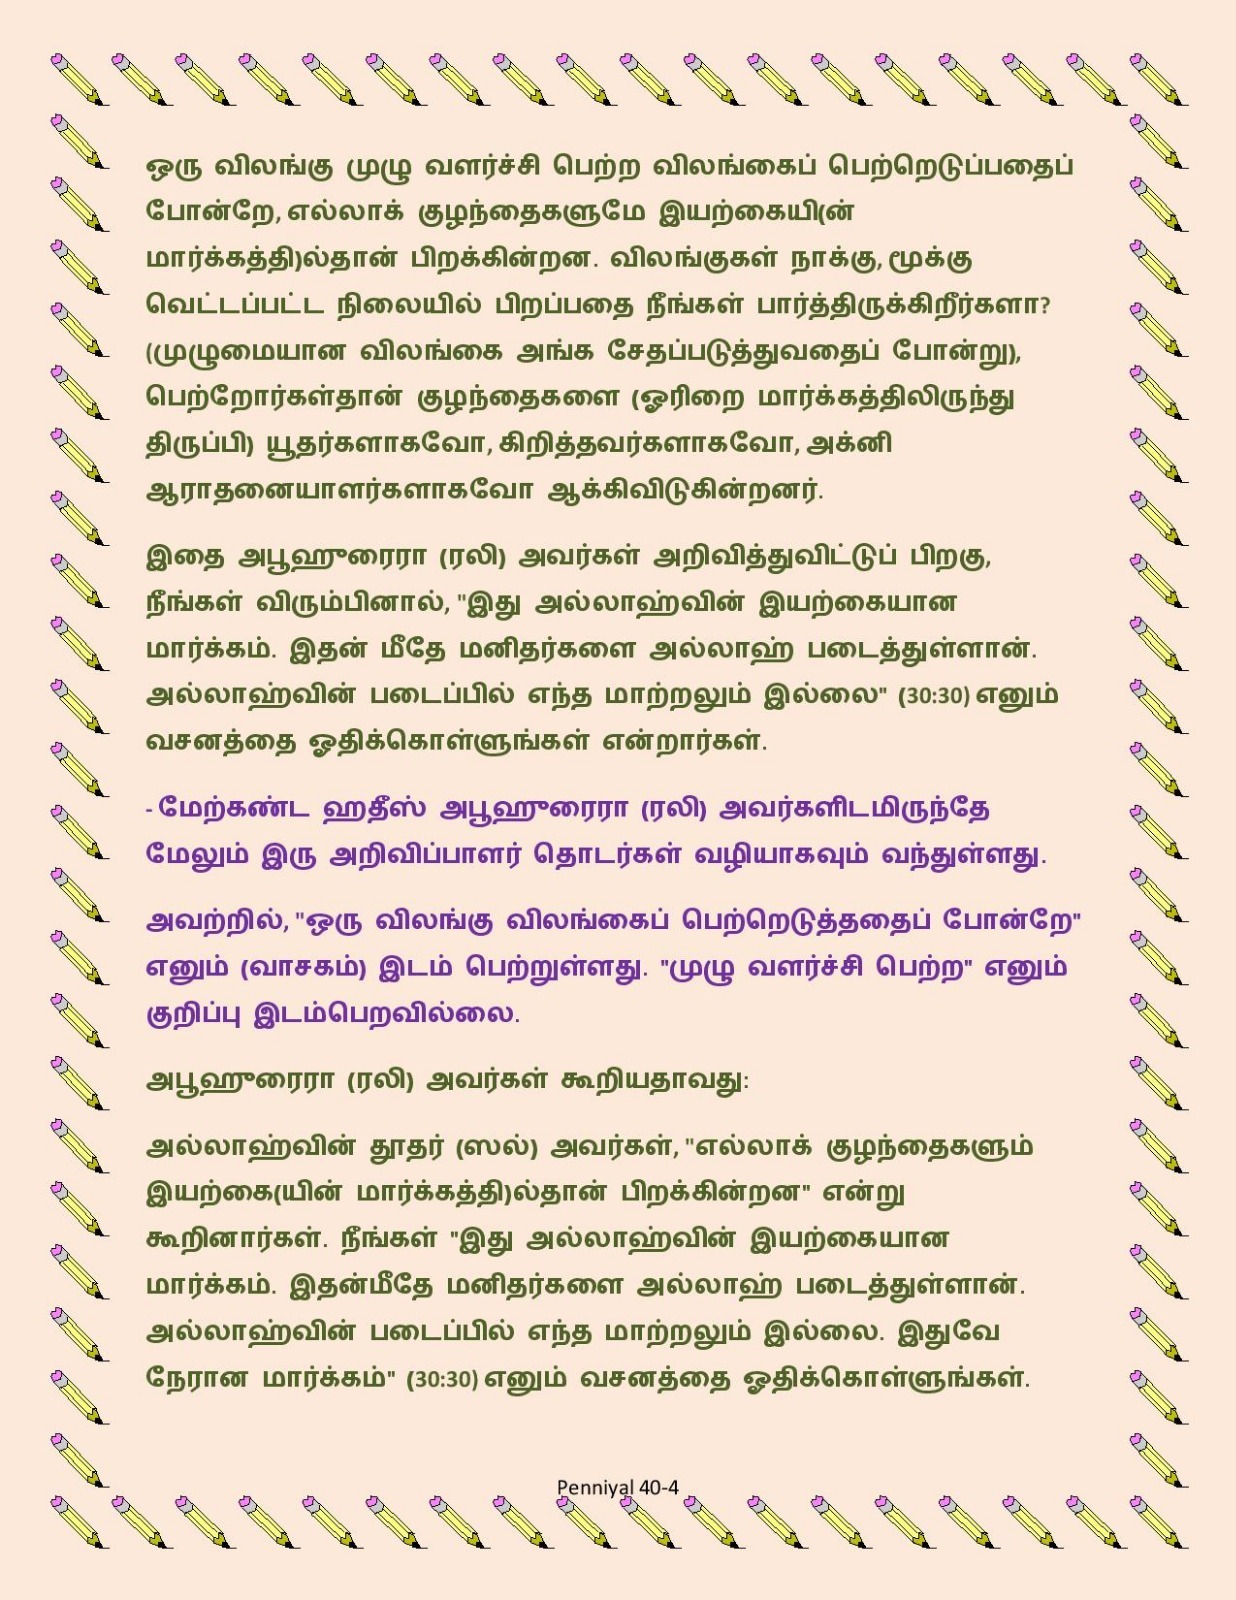 ஒரு விலங்கு முழு வளர்ச்சி பெற்ற விலங்கைப் பெற்றெடுப்பதைப்
போன்றே, எல்லாக் குழந்தைகளுமே இயற்கையி(ன்
மார்க்கத்தி)ல்தான் பிறக்கின்றன. விலங்குகள் நாக்கு, மூக்கு
வெட்டப்பட்ட நிலையில் பிறப்பதை நீங்கள் பார்த்திருக்கிறீர்களா?
(முழுமையான விலங்கை அங்க சேதப்படுத்துவதைப் போன்று),
பெற்றோர்கள்தான் குழந்தைகளை (ஓரிறை மார்க்கத்திலிருந்து
திருப்பி) யூதர்களாகவோ, கிறித்தவர்களாகவோ, அக்னி
ஆராதனையாளர்களாகவோ ஆக்கிவிடுகின்றனர்.
இதை அபூஹுரைரா (ரலி) அவர்கள் அறிவித்துவிட்டுப் பிறகு,
நீங்கள் விரும்பினால், "இது அல்லாஹ்வின் இயற்கையான
மார்க்கம். இதன் மீதே மனிதர்களை அல்லாஹ் படைத்துள்ளான்.
அல்லாஹ்வின் படைப்பில் எந்த மாற்றலும் இல்லை" (30:30) எனும்
வசனத்தை ஓதிக்கொள்ளுங்கள் என்றார்கள்.
- மேற்கண்ட ஹதீஸ் அபூஹுரைரா (ரலி) அவர்களிடமிருந்தே
மேலும் இரு அறிவிப்பாளர் தொடர்கள் வழியாகவும் வந்துள்ளது.
அவற்றில், "ஒரு விலங்கு விலங்கைப் பெற்றெடுத்ததைப் போன்றே"
எனும் (வாசகம்) இடம் பெற்றுள்ளது. "முழு வளர்ச்சி பெற்ற" எனும்
குறிப்பு இடம்பெறவில்லை.
அபூஹுரைரா (ரலி) அவர்கள் கூறியதாவது:
அல்லாஹ்வின் தூதர் (ஸல்) அவர்கள், "எல்லாக் குழந்தைகளும்
இயற்கை(யின் மார்க்கத்தி)ல்தான் பிறக்கின்றன" என்று
கூறினார்கள். நீங்கள் "இது அல்லாஹ்வின் இயற்கையான
மார்க்கம். இதன்மீதே மனிதர்களை அல்லாஹ் படைத்துள்ளான்.
அல்லாஹ்வின் படைப்பில் எந்த மாற்றலும் இல்லை. இதுவே
நேரான மார்க்கம்" (30:30) எனும் வசனத்தை ஓதிக்கொள்ளுங்கள்.
Penniyal 40-4